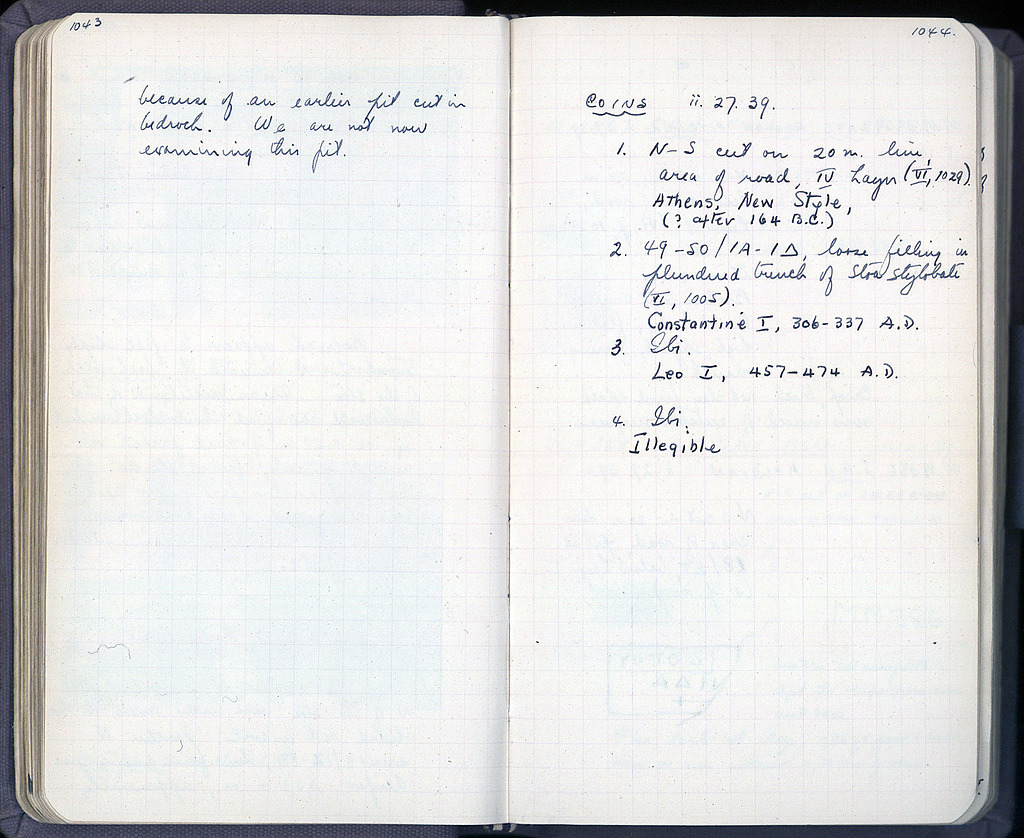 1043
because of an earlier pit cut in
bedrock. We are not now
examining this pit.
1044.
COINS ii. 27. 39.
1. N-S cut on 20 m. line,
area of road, IV Layer (VI, 1029).
Athens, New Style,
(? after 164 B.C.)
2. 49-50/ΙΑ-ΙΔ, loose filling in
plundred trench of Stoa stylobate
(VI, 1005).
Constantine I, 306-337 A.D.
3. Ibi.
Leo I, 457-474 A.D.
4. Ibi.
Illegible